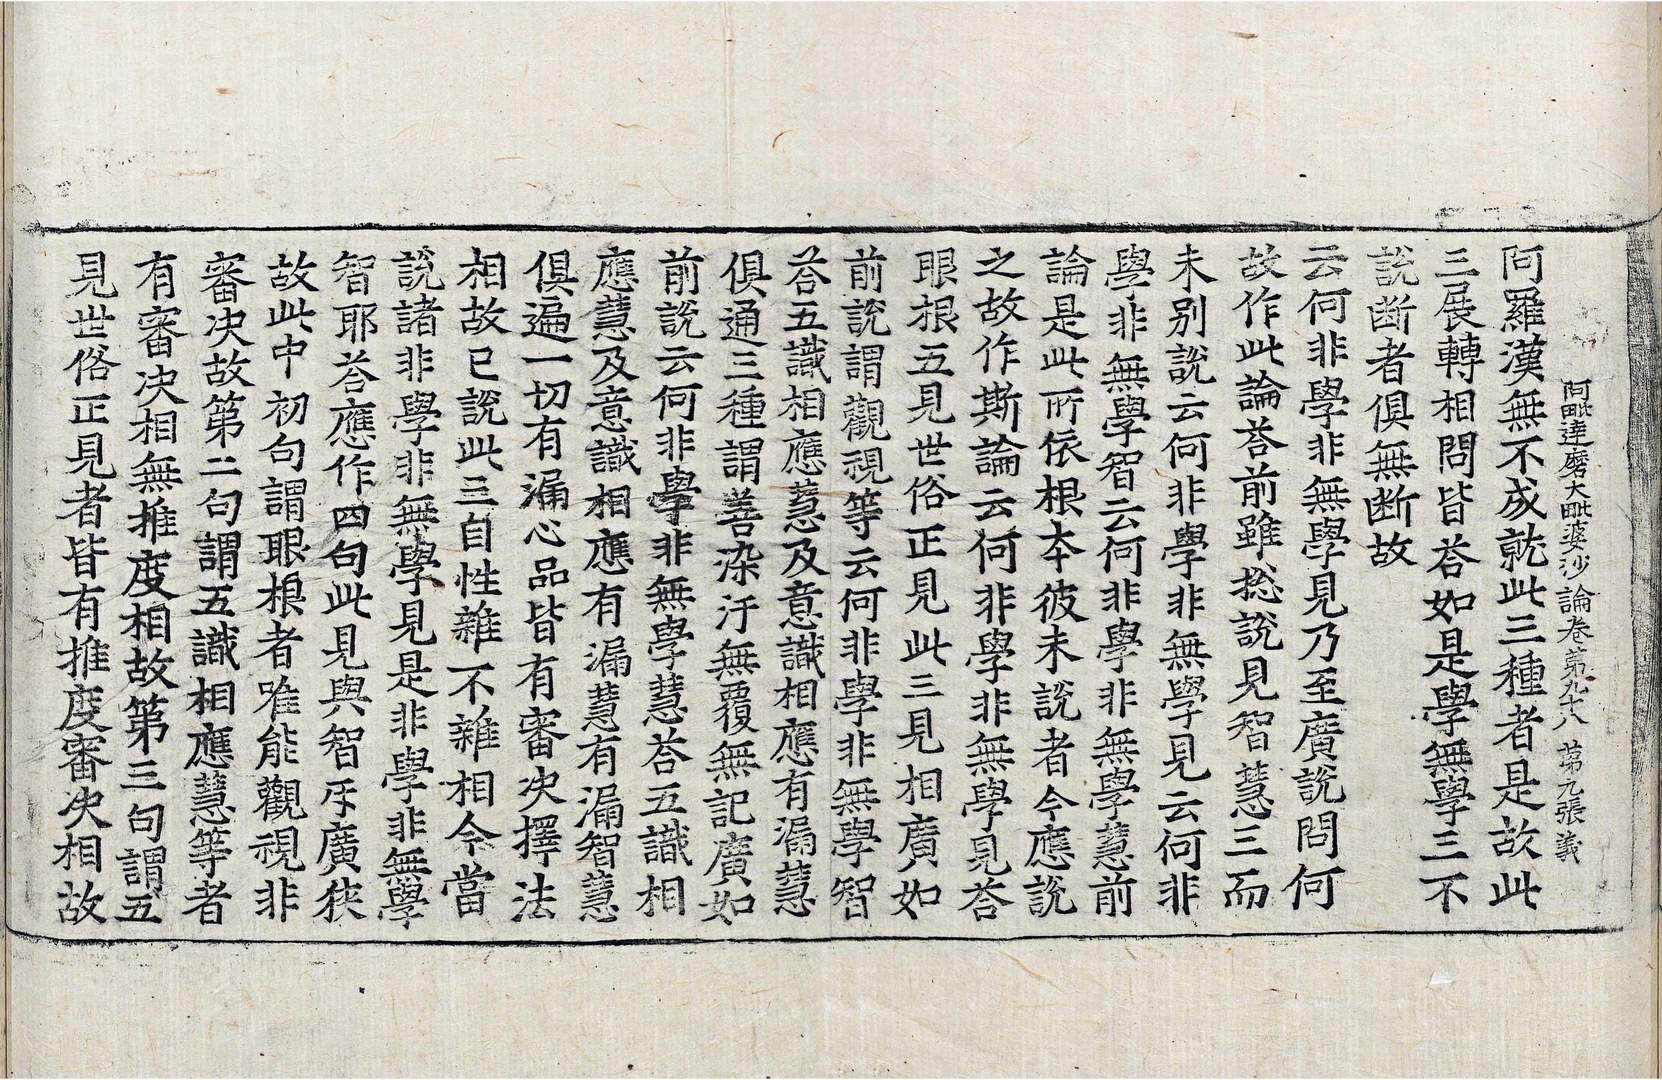 阿毗達磨大毗婆沙論卷第九十八 第九張 義
阿羅漢無不成就此三種者是故此
三展轉相問皆荅如是學無學三不
說断者俱無断故
云何非學非無學見乃至廣說問何
故作此論荅前雖揔說見智慧三而
未别說云何非學非無學見云何非
學非無學智云何非學非無學慧前
論是此所依根本彼未說者今應說
之故作斯論云何非學非無學見荅
眼根五見世俗正見此三見相廣如
前說謂觀視等云何非學非無學智
荅五識相應慧及意識相應有漏慧
俱通三種謂善染汙無覆無記廣如
前說云何非學非無學慧荅五識相
應慧及意識相應有漏慧有漏智慧
俱遍一切有漏心品皆有審决擇法
相故已說此三自性雜不雜相今當
說諸非學非無學見是非學非無學
智耶荅應作四句此見與智互廣狹
故此中初句謂眼根者唯能觀視非
審决故第二句謂五識相應慧等者
有審决相無推度相故第三句謂五
見世俗正見者皆有推度審决相故